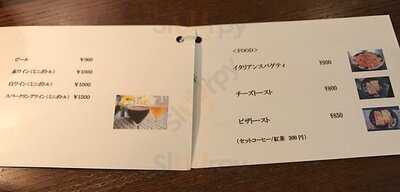 ビール ¥900
赤ワイン(ミニボトル) ¥1000
白ワイン(ミニボトル) ¥1000
スパークリングワイン(ミニボトル) ¥1500
<FOOD>
イタリアンスパゲティ ¥950
チーズトースト ¥800
ピザトースト ¥850
(セットコーヒー/紅茶 300円)